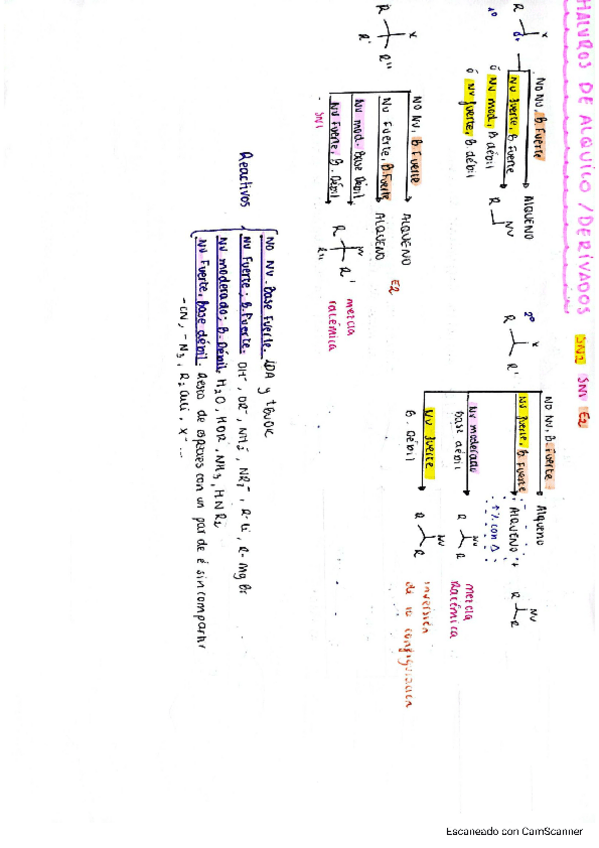 HALUROS DE ALQUILO / DERIVADOS SN2 SN1 E2
R X
1º
NO NU, B. Fuerte → ALQUENO
NU fuerte, B. Fuerte
ó NU mod, B débil
ó NU fuerte, B débil
R NU
2º
R X R'
NO NU, B. Fuerte → Alqueno
NU fuerte, B. Fuerte → ALQUENO +
↑% con Δ
R NU R
NU moderado
base débil
R NU R
mezcla
Racémica
NU fuerte
B. Débil
R NU R
Inversión
de la configuración
R X R' R''
NO NU, B. Fuerte → ALQUENO
NU Fuerte, B. Fuerte → ALQUENO
E2
NU mod. Base Débil
NU Fuerte, B. Débil
SN1
R NU R' R''
mezcla
racémica
Reactivos
NO NU - Base Fuerte. LDA y
NU Fuerte; B. Fuerte. OH⁻, OR⁻, NH₂⁻, NR₂⁻, R-Li, R-MgBr
NU moderado; B. Débil. H₂O, HOR, NH₃, HNR₂
NU Fuerte, base débil. Resto de especies con un par de é sin compartir
-CN, -N₃, R₂CuLi, X⁻ ...
Escaneado con CamScanner